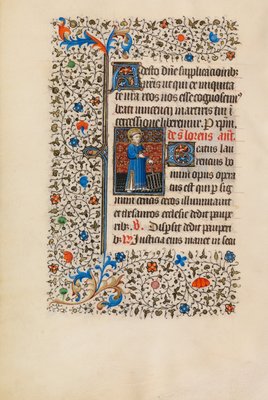 Adesto dñe supplicacioñibꝫ
nr̃is ut qui ex iniquita
te nr̃a reos nos esse cognoscim⁹
beati vincencij martiris tui in
tercessione liberemur. P xp̃m
de s lorens ant.
Beatus lau
rencius bo
num opus opera
tus est qui ꝑ sig
num crucis cecos illuminauit
et thesauros ecclesie dedit paupe
ribꝫ. V. Dispsit dedit pauperi
bꝫ R Iusticia eius manet in secu